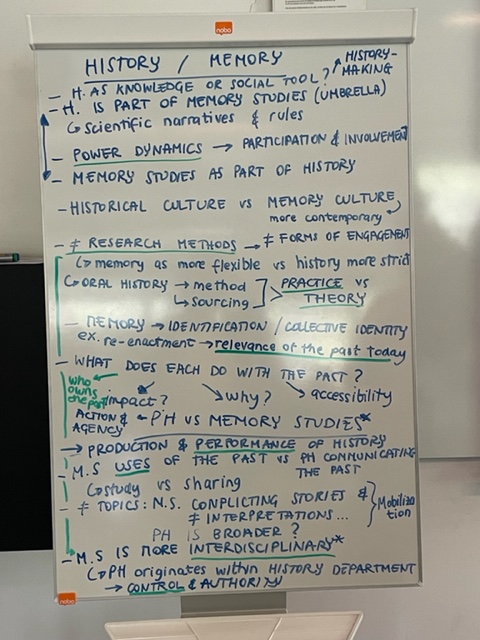 nobo
HISTORY / MEMORY
↗ HISTORY-
MAKING
- H. AS KNOWLEDGE OR SOCIAL TOOL?
- H. IS PART OF MEMORY STUDIES (UMBRELLA)
↳ scientific narratives & rules
- POWER DYNAMICS → PARTICIPATION & INVOLVEMENT
- MEMORY STUDIES AS PART OF HISTORY
- HISTORICAL CULTURE VS MEMORY CULTURE
more contemporary
- ≠ RESEARCH METHODS → ≠ FORMS OF ENGAGEMENT
↳ memory as more flexible vs history more strict
↳ ORAL HISTORY → method
↳ sourcing
PRACTICE VS
THEORY
- MEMORY → IDENTIFICATION / COLLECTIVE IDENTITY
ex. re-enactment → relevance of the past today
- WHAT DOES EACH DO WITH THE PAST?
who
owns
the past
impact?
why?
accessibility
ACTION &
AGENCY
- PH VS MEMORY STUDIES*
→ PRODUCTION & PERFORMANCE OF HISTORY
- M.S USES OF THE PAST VS PH COMMUNICATING
THE PAST
↳ study vs sharing
- ≠ TOPICS: N.S. CONFLICTING STORIES &
≠ INTERPRETATIONS...
Mobiliza
tion
PH IS BROADER?
- M.S IS MORE INTERDISCIPLINARY*
↳ PH ORIGINATES WITHIN HISTORY DEPARTMENT
→ CONTROL & AUTHORITY
nobo